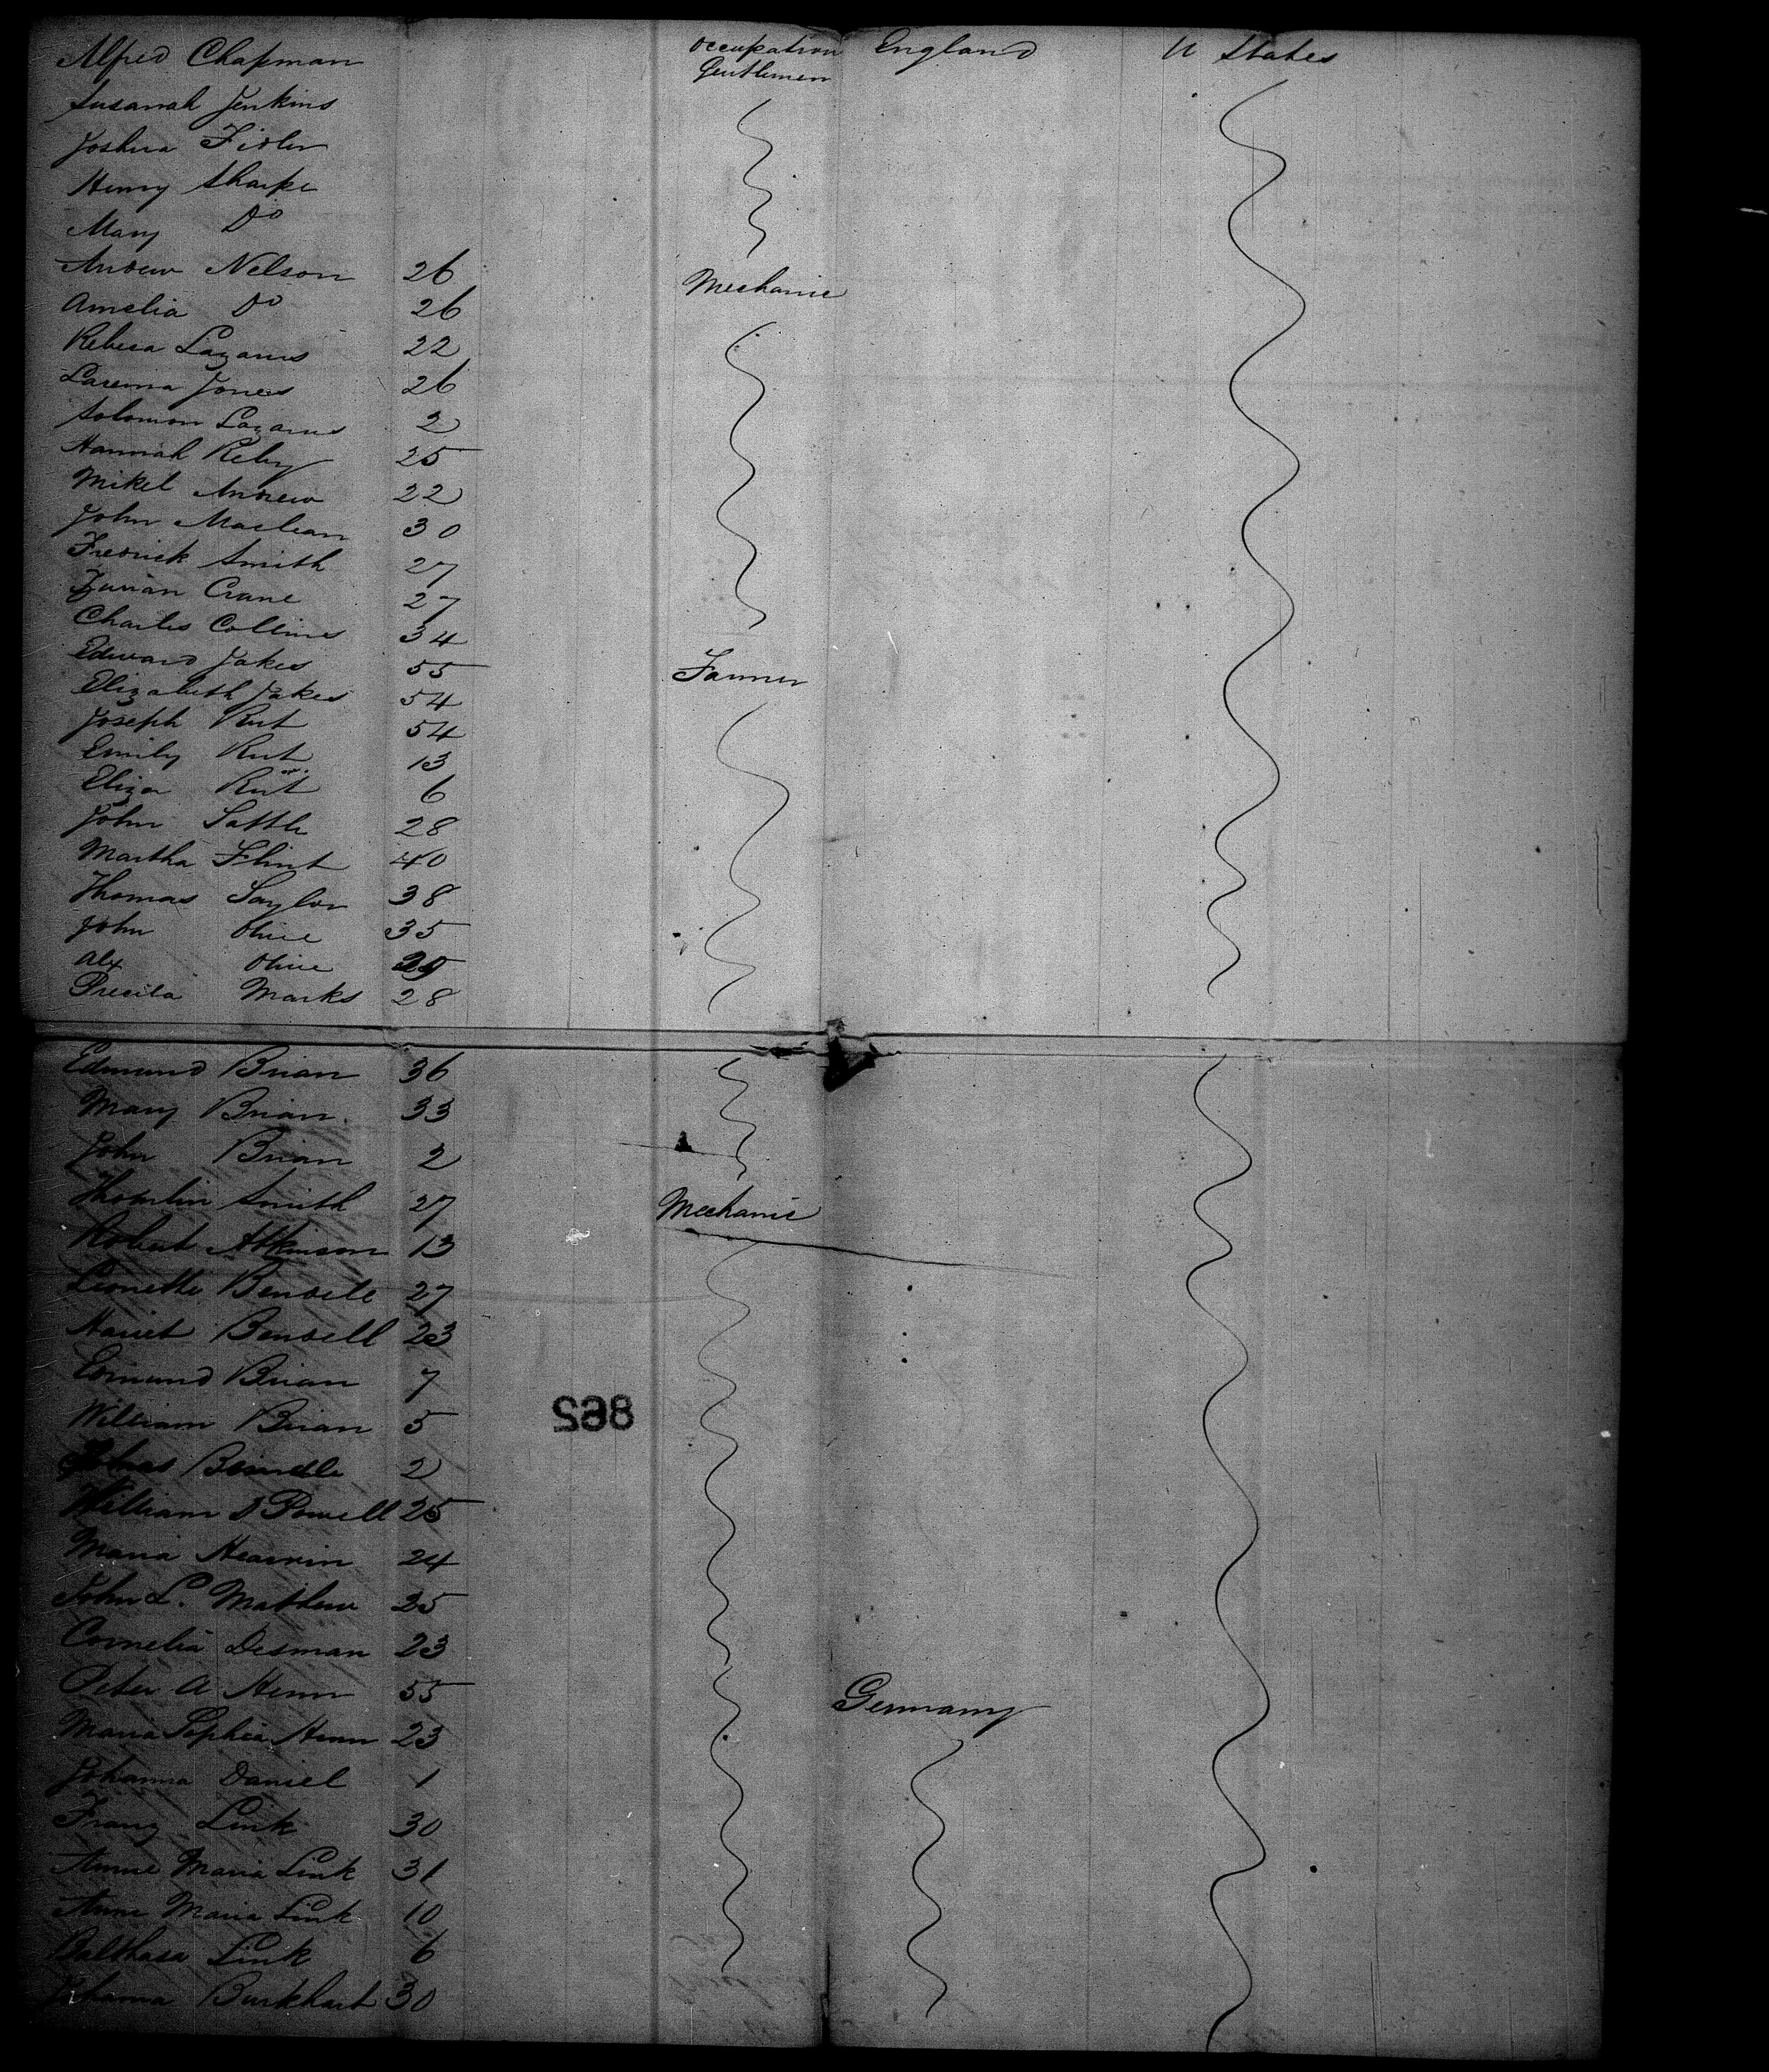 Alfred Chapman occupation England U States
Gentlemen
Susanah Jenkins
Joshua Fidler
Henry Sharpe
Mary Do
Andrew Nelson 26 Mechanic
Amelia Do 26
Rebeca Lazarus 22
Jones 26
Solomon Lazarus 2
Hannah 25
Mikel Andrew 22
John Maclean 30
Fredrick Smith 27
Crane 27
Charles Collins 34
Edward Jakes 55 Farmer
Elizabeth Jakes 54
Joseph Rut 54
Emily Rut 13
Eliza Rut 6
John 28
Martha Flint 40
Thomas Saylor 38
John Olive 35
Alex Olive
Precila Marks 28
Edmund Brian 36
Mary Brian 33
John Brian 2
Smith 27 Mechanic
Robert Atkinson 13
Bendell 27
Hariet Bendell 23
Edmund Brian 7
William Brian 5
862
2
William D Powell 25
Maria 24
John L. Mathew 25
Cornelia Desman 23
Peter A Henn 55 Germany
Maria Sophia Henn 23
Johanna Daniel 1
Franz Link 30
Anne Maria Link 31
Anne Maria Link 10
Balthasa Link 6
Johanna Burkhart 30